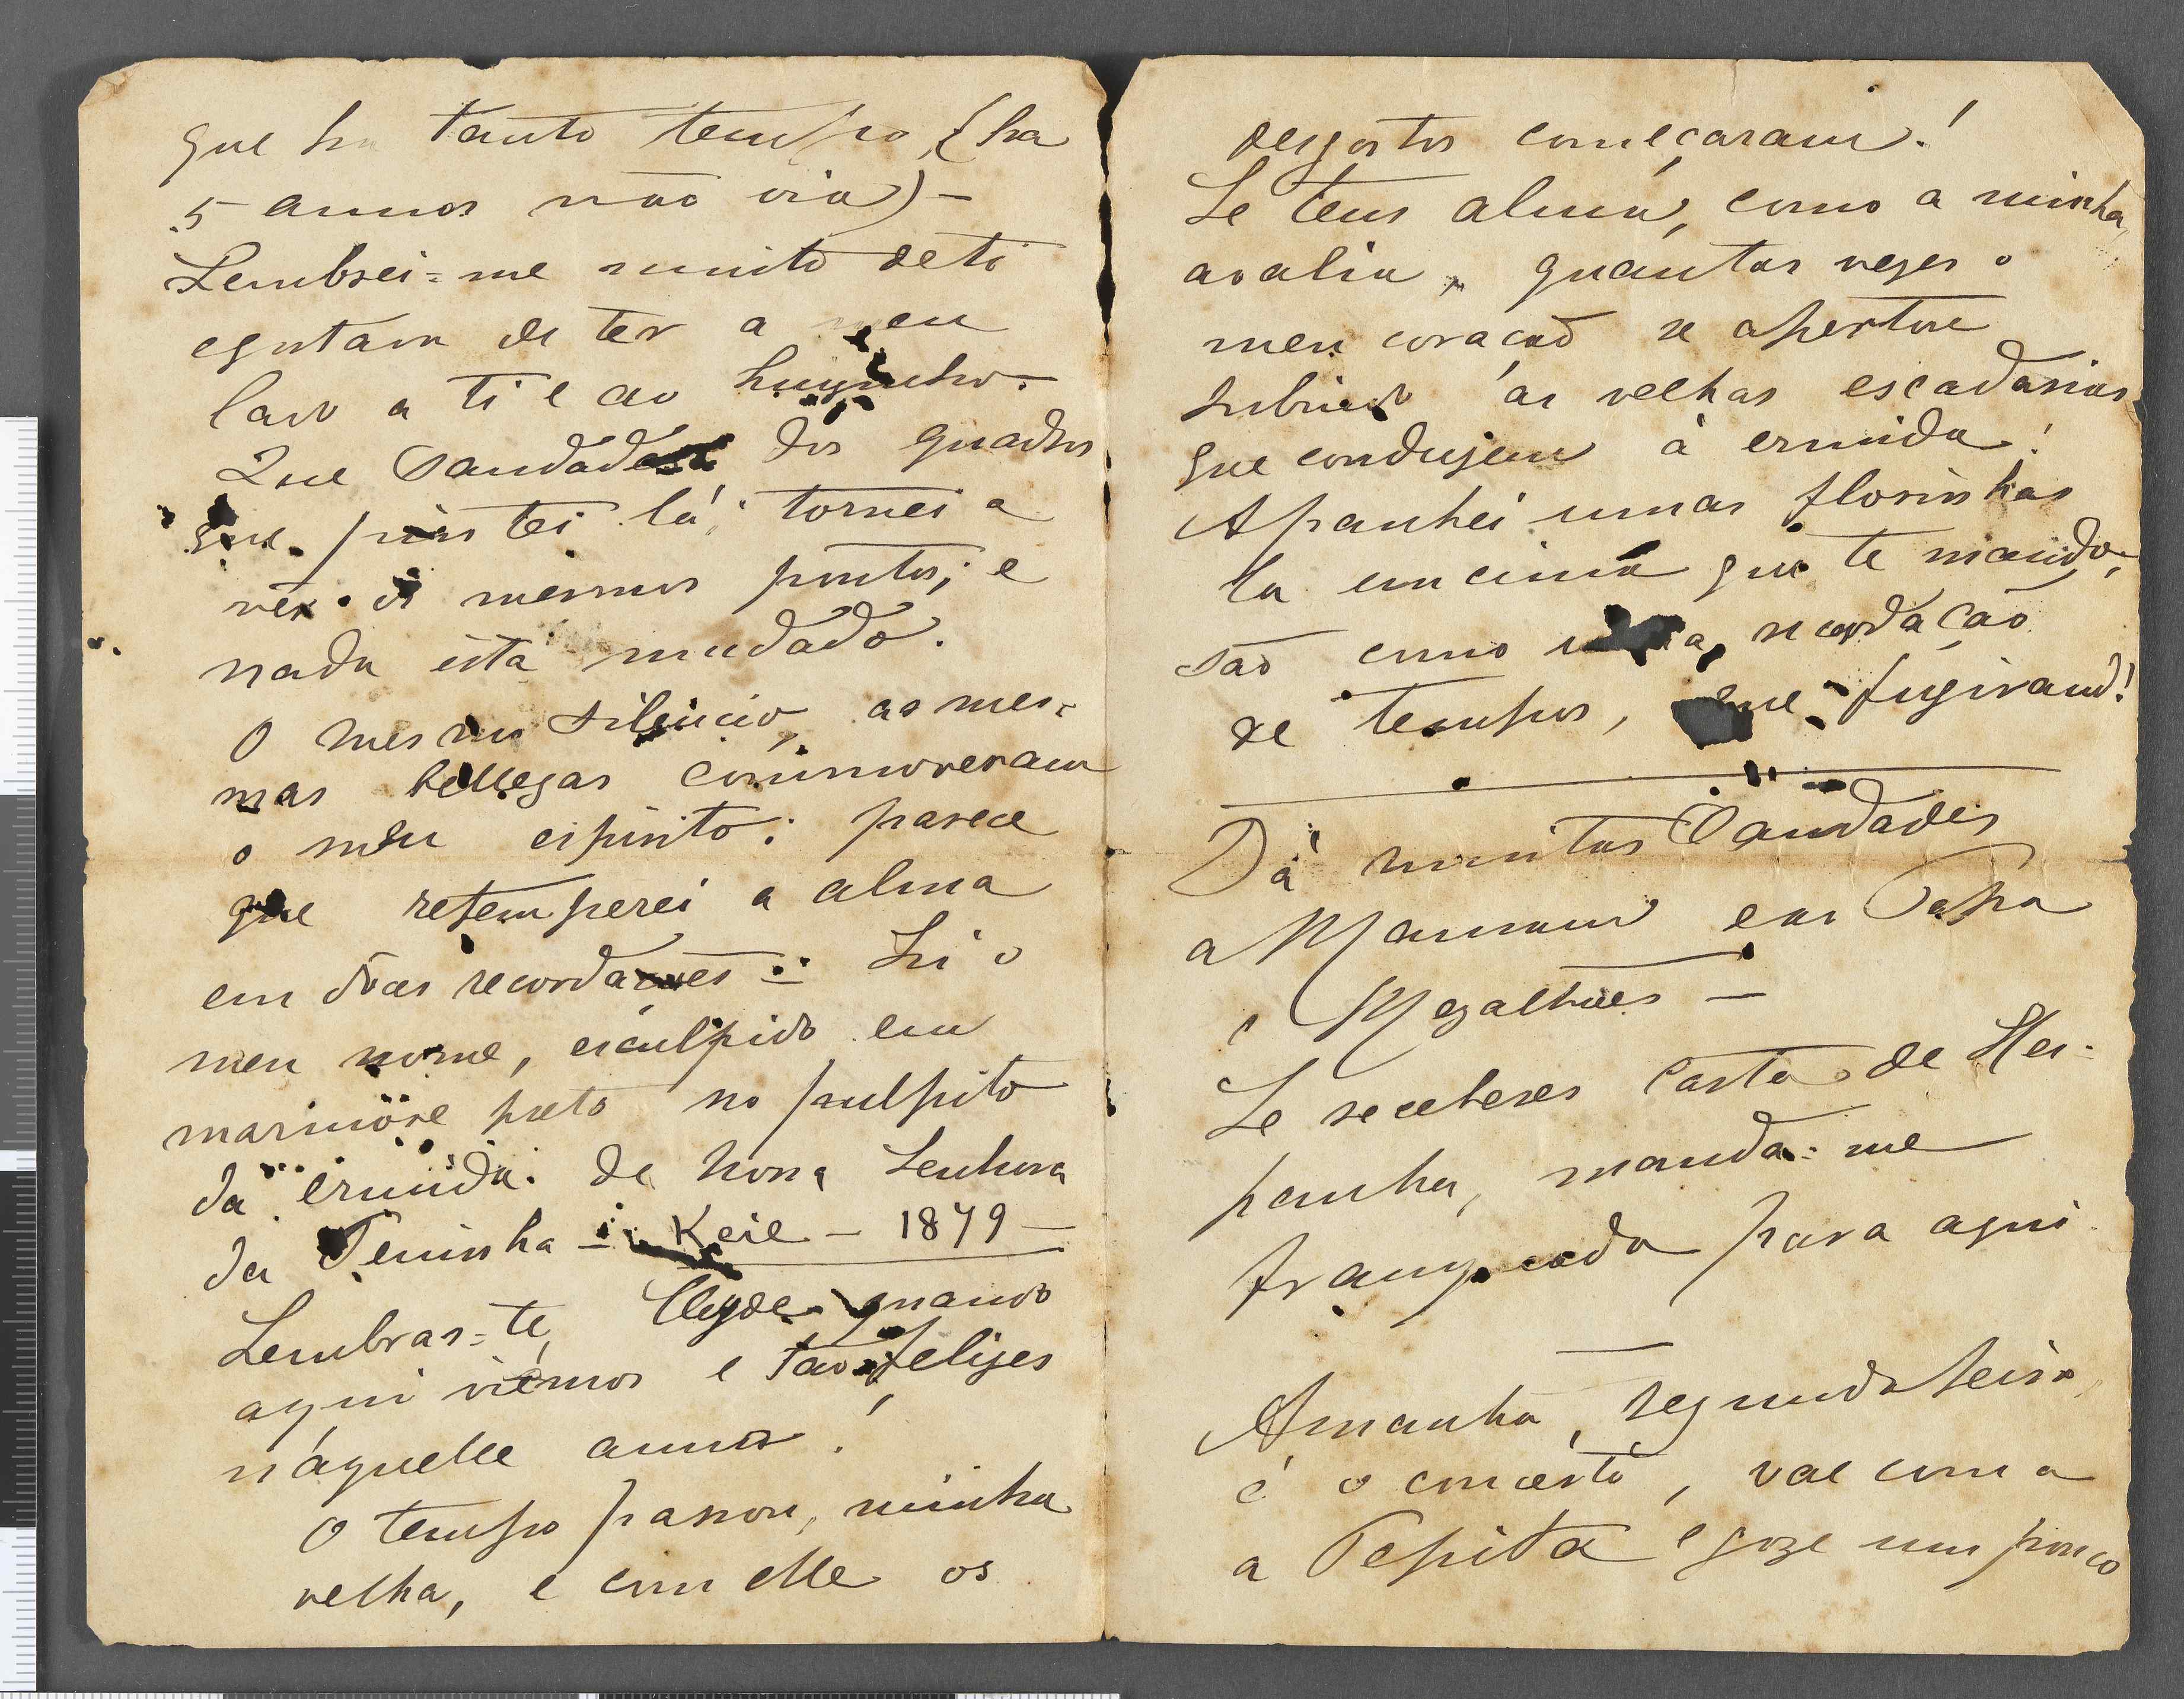 que ha tanto tempo, (ha
5 annos não via) –
Lembrei=me muito de ti
egostava de ter a meu
lado a ti e ao
Que Saudades dos quadros
que pintei lá; tornei a
ver os mesmos pontos; e
nada está mudado.
O mesmo silencio, as mes-
mas bellezas commoveram
o meu espirito; parece
que retemperei a alma
em doces recordações – Li o
meu nome, esculpido em
marmore preto no pulpito
da ermida de Nossa Senhora
da Peninha – Keil – 1879 –
Lembras=te, Cleyde quando
aqui viémos e tão felizes
n'áquelle anno!
O tempo passou, minha
velha, e com elle os
desgostos começaram!
Se tens alma, como a minha,
avalia, quantas vezes o
meu coração se apertou
subindo ás velhas escadarias
que conduzem á ermida!
Apanhei umas florinhas
lá em cima que te mando,
são como uma recordação
de tempos, que fugiram!
Dá muitas Saudades
a Mamam e ao Papa
e Magalhães –
Se receberes carta de Hes-
panha, manda=me
franqueada para aqui
Amanhã, segunda feira,
é o concerto, vae com a
a Pepita e goze um pouco